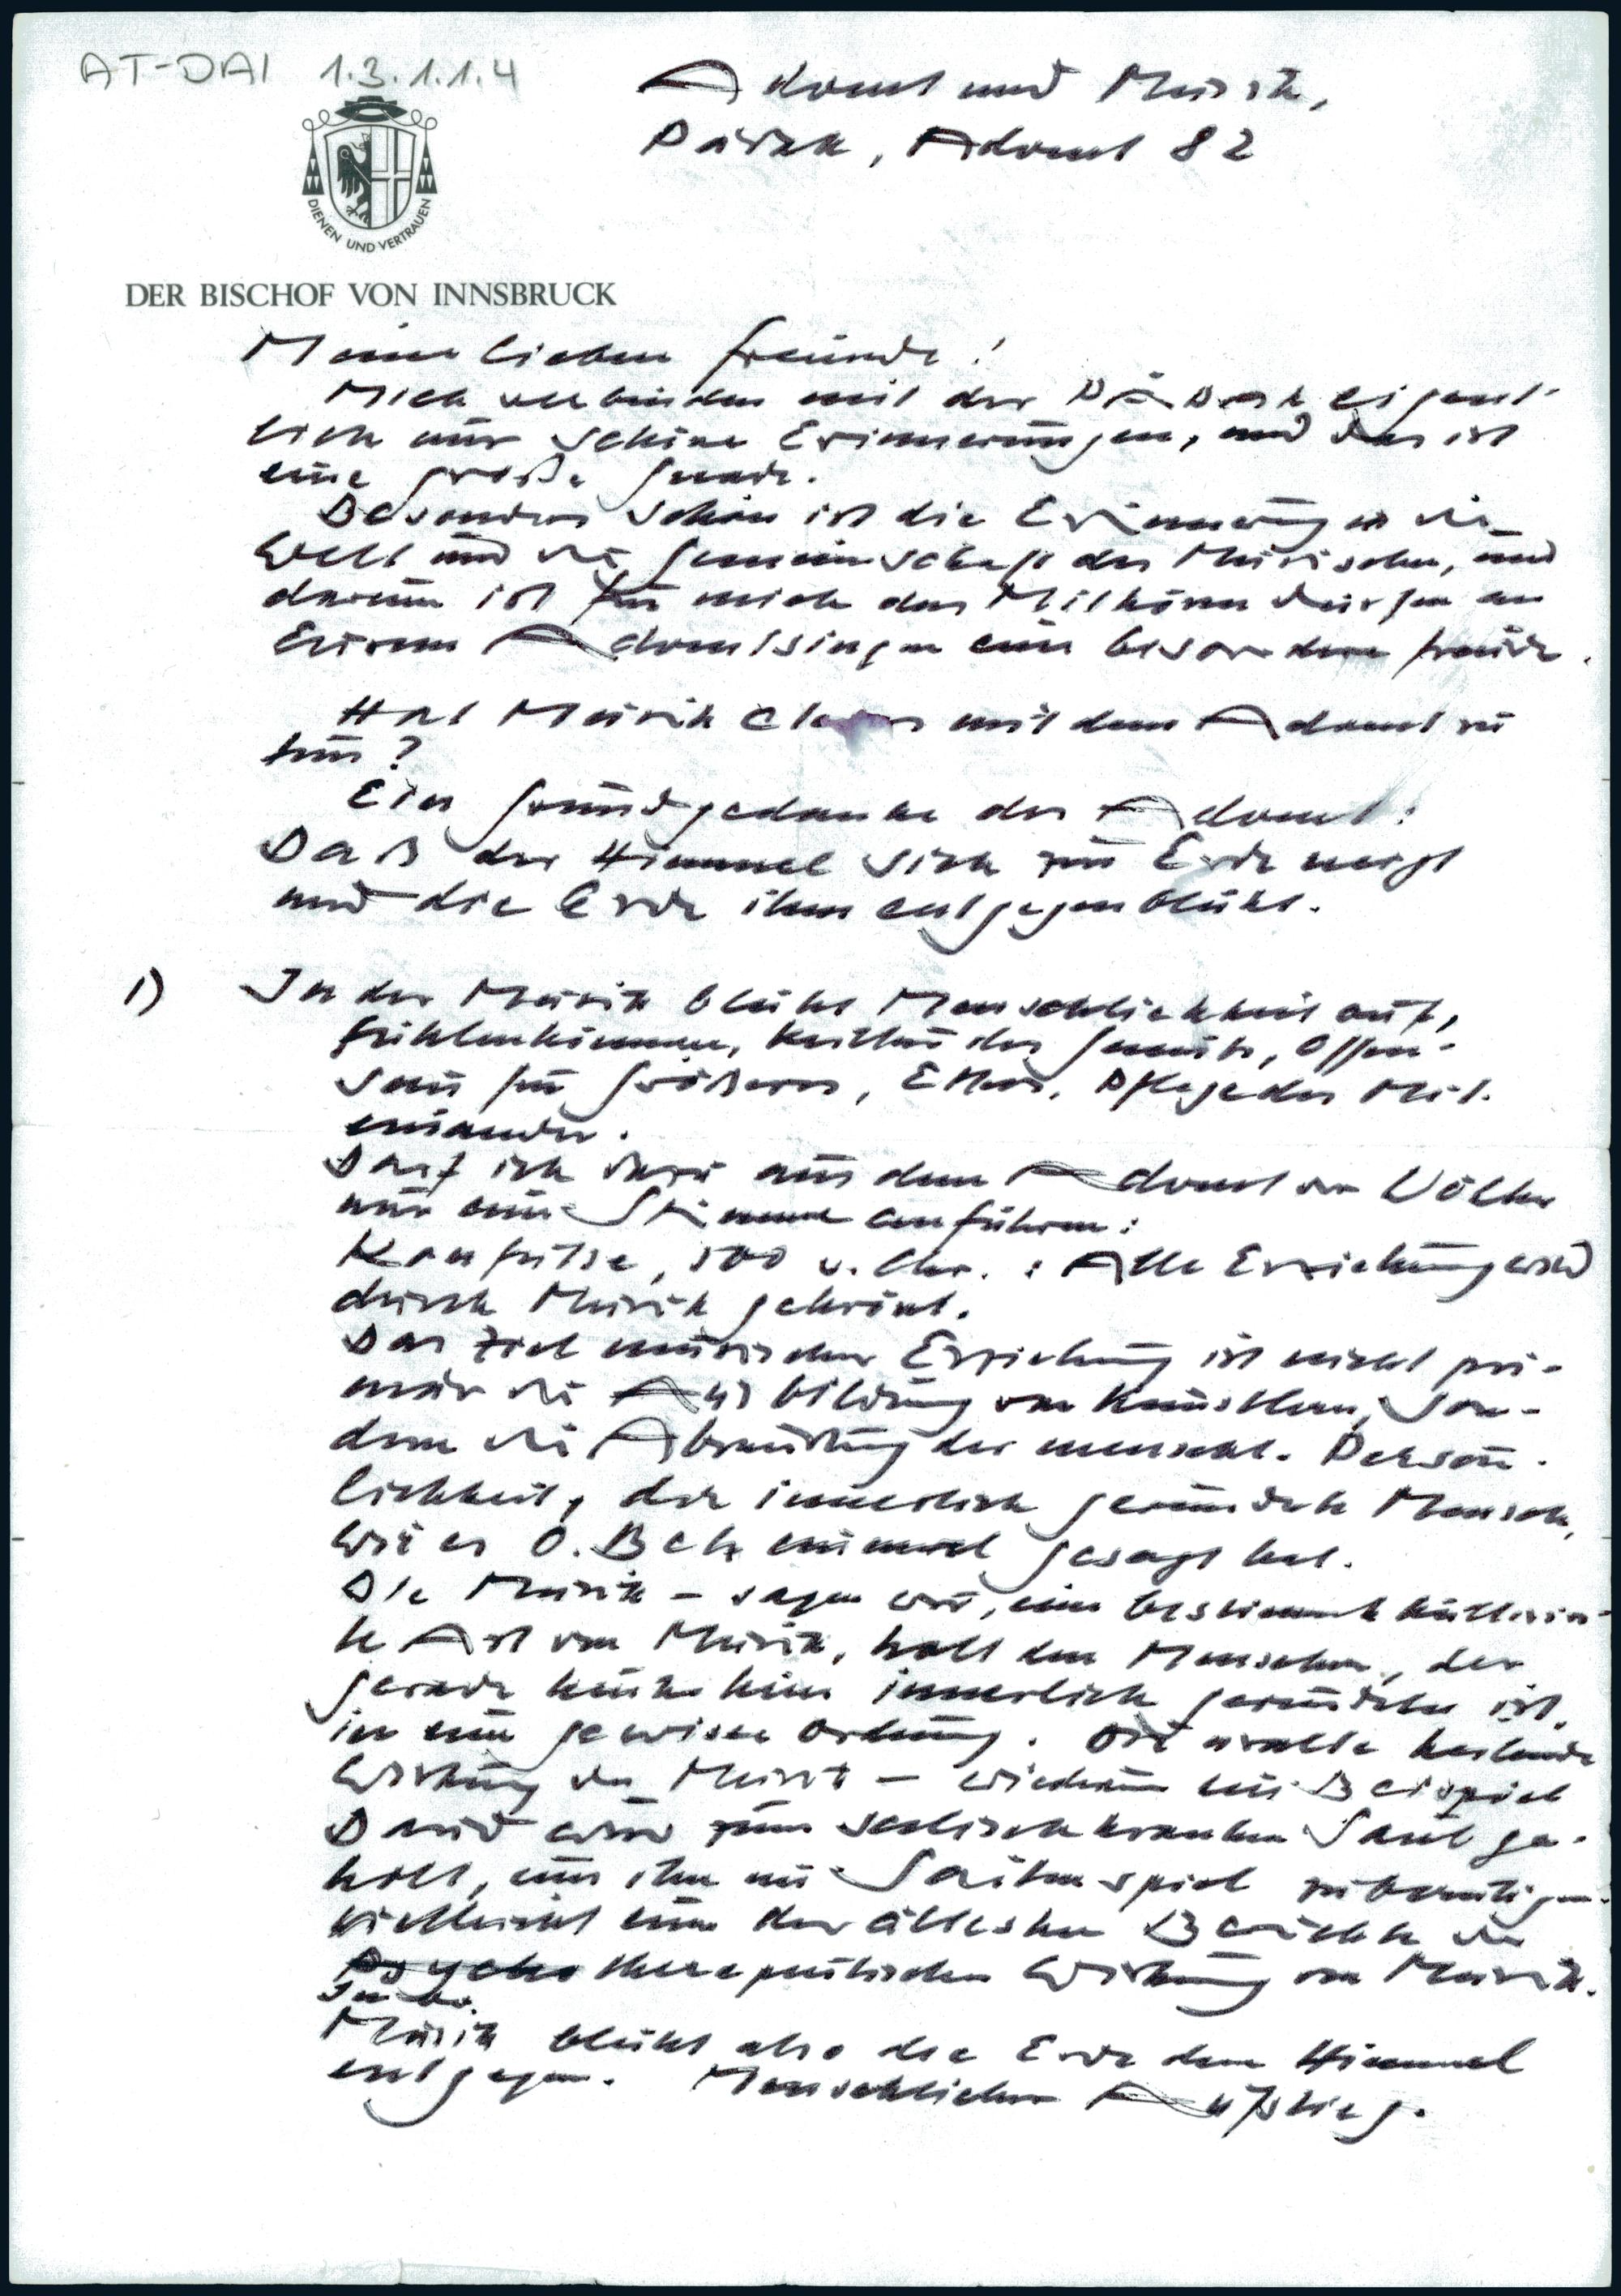 AT-DAI 1.3.1.1.4
Advent und Musik,
Pädak, Advent 82
DIENEN UND VERTRAUEN
DER BISCHOF VON INNSBRUCK
Meine lieben Freunde!
Mich verbinden mit der PÄDAK eigent-
lich nur schöne Erinnerungen, und das ist
eine große Gnade.
Besonders schön ist die Erinnerung an die
Welt und die Gemeinschaft des Musischen, und
darum ist für mich das Mithören dürfen an
Eurem Adventsingen eine besondere Freude.
Hat Musik etwas mit dem Advent zu
tun?
Ein Grundgedanke des Advent:
Daß der Himmel sich zur Erde neigt
und die Erde ihm entgegenblüht.
1) In der Musik blüht Menschlichkeit auf,
Fühlenkönnen, Kultur des Gemüts, Offen-
sein für Größeres, Ethos, Pflege des Mit-
einander.
Darf ich dazu aus dem Advent der Völker
nur eine Stimme anführen:
Konfutse, 500 v. Chr.: Alle Erziehung wird
durch Musik gekrönt.
Das Ziel musischer Erziehung ist nicht pri-
mär die Ausbildung von Künstlern, son-
dern die Abrundung der menschl. Persön-
lichkeit, der innerlich gerundete Mensch,
wie es O. Betz einmal gesagt hat.
Die Musik – sagen wir, eine bestimmte kultivier-
te Art von Musik, holt den Menschen, der
gerade heute kein innerlich gerundeter ist,
in eine gewisse Ordnung. Die uralte heilende
Wirkung der Musik – wiederum ein Beispiel
David wird zum seelisch kranken Saul ge-
holt, um ihn mit Saitenspiel zu beruhigen –
vielleicht einer der ältesten Berichte der
Psycho therapeutischen Wirkung von Musik.
In der
Musik blüht also die Erde dem Himmel
entgegen. Menschlicher Aufstieg.